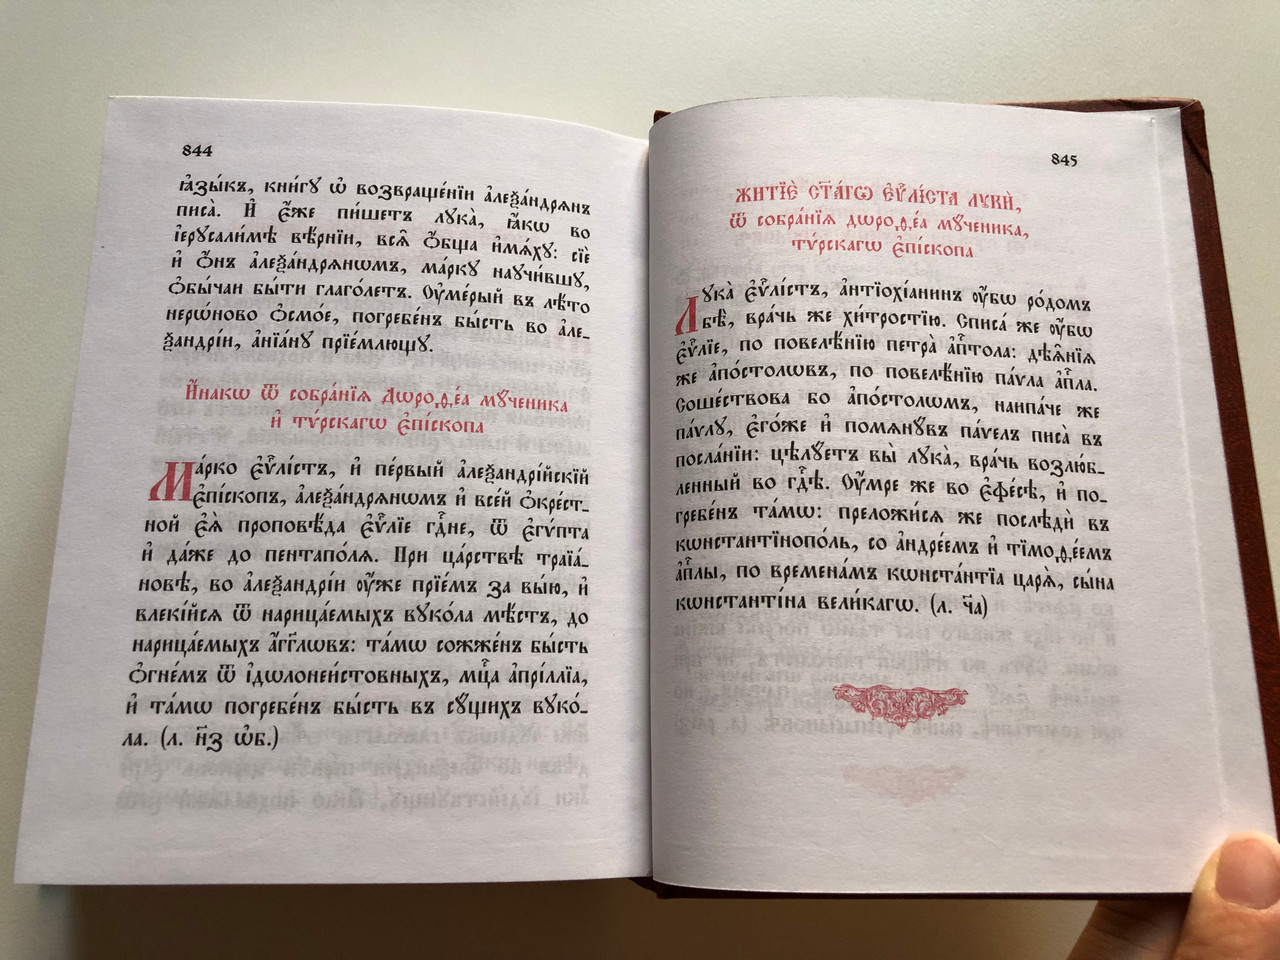 844
ꙗ҆зы́къ, кни́гꙋ ѡ҆ возвраще́нїи а҆леѯа́ндрѧнъ
писа̀. И҆ є҆́же пи́шетъ лꙋка̀, ꙗ҆́кѡ во
і҆ерꙋсали́мѣ вѣ́рнїи, всѧ̑ ѻ҆́бща и҆мѧ́хꙋ: сїѐ
и҆ ѻ҆́нъ а҆леѯа́ндрѧнѡмъ, ма́ркꙋ наꙋчи́вшꙋ,
ѻ҆бы́чаи бы́ти глаго́летъ. Оу҆ме́рый въ лѣ́то
нерѡ́ново ѻ҆смо́е, погребе́нъ бы́сть во а҆ле-
ѯандрі́и, а҆нїа́нꙋ прїе́млющꙋ.
И҆́накѡ ѿ собра́нїѧ Дѡроѳе́а мꙋ́ченика
и҆ тѵ́рскагѡ є҆пі́скопа
Ма́рко є҆ѵⷢ҇лі́стъ, и҆ пе́рвый а҆леѯандрі́йскїй
є҆пі́скопъ, а҆леѯа́ндрѧнѡмъ и҆ все́й ѻ҆кре́ст-
ной є҆ѧ̀ проповѣ́да є҆ѵⷢ҇лїе гдⷭ҇не, ѿ є҆гѵ́пта
и҆ да́же до пентапо́лѧ. При ца́рствѣ траїа́-
новѣ, во а҆леѯандрі́и оу҆́же прїе́мъ за вы́ю, и҆
влекі́йсѧ ѿ нарица́емыхъ вꙋко́ла мѣ́стъ, до
нарица́емыхъ а҆́гг҃лѡвъ: та́мѡ сожже́нъ бы́сть
ѻ҆гне́мъ ѿ і҆дѡлоне́истовныхъ, мцⷭ҇а а҆прі́ллїа,
и҆ та́мѡ погребе́нъ бы́сть въ сꙋ́щихъ вꙋко́-
ла. (л. н҃з ѡ҆б.)
845
ЖИТЇЀ СТ҃А́ГѠ Є҆ѴⷢЛІ́СТА ЛꙊКЍ,
ѿ собра́нїѧ дѡроѳе́а мꙋ́ченика,
тѵ́рскагѡ є҆пі́скопа
Лꙋка̀ є҆ѵⷢ҇лі́стъ, а҆нтїохі́анинъ оу҆́бѡ ро́домъ
бѣ̀, вра́чь же хи́тростїю. Списа́ же оу҆́бѡ
є҆ѵⷢ҇лїе, по повелѣ́нїю петра̀ а҆пⷭ҇тола: дѣѧ̑нїѧ
же а҆по́столѡвъ, по повелѣ́нїю па́ѵла а҆пⷭ҇ла.
Соше́ствова бо а҆по́столѡмъ, наипа́че же
па́ѵлꙋ, є҆го́же и҆ помѧнꙋ́въ па́ѵелъ писа̀ въ
посла́нїи: цѣлꙋ́етъ вы̀ лꙋка̀, вра́чь возлю́б-
ленный во гдⷭ҇ѣ. Оу҆́мре же во є҆фе́сѣ, и҆ по-
гребе́нъ та́мѡ: преложи́сѧ же послѣдѝ въ
кѡнстантїнопо́ль, со а҆ндре́емъ и҆ тїмоѳе́емъ
а҆пⷭ҇лы, по времена́мъ кѡнста́нтїа царѧ̀, сы́на
кѡнстанті́на вели́кагѡ. (л. ч҃а)